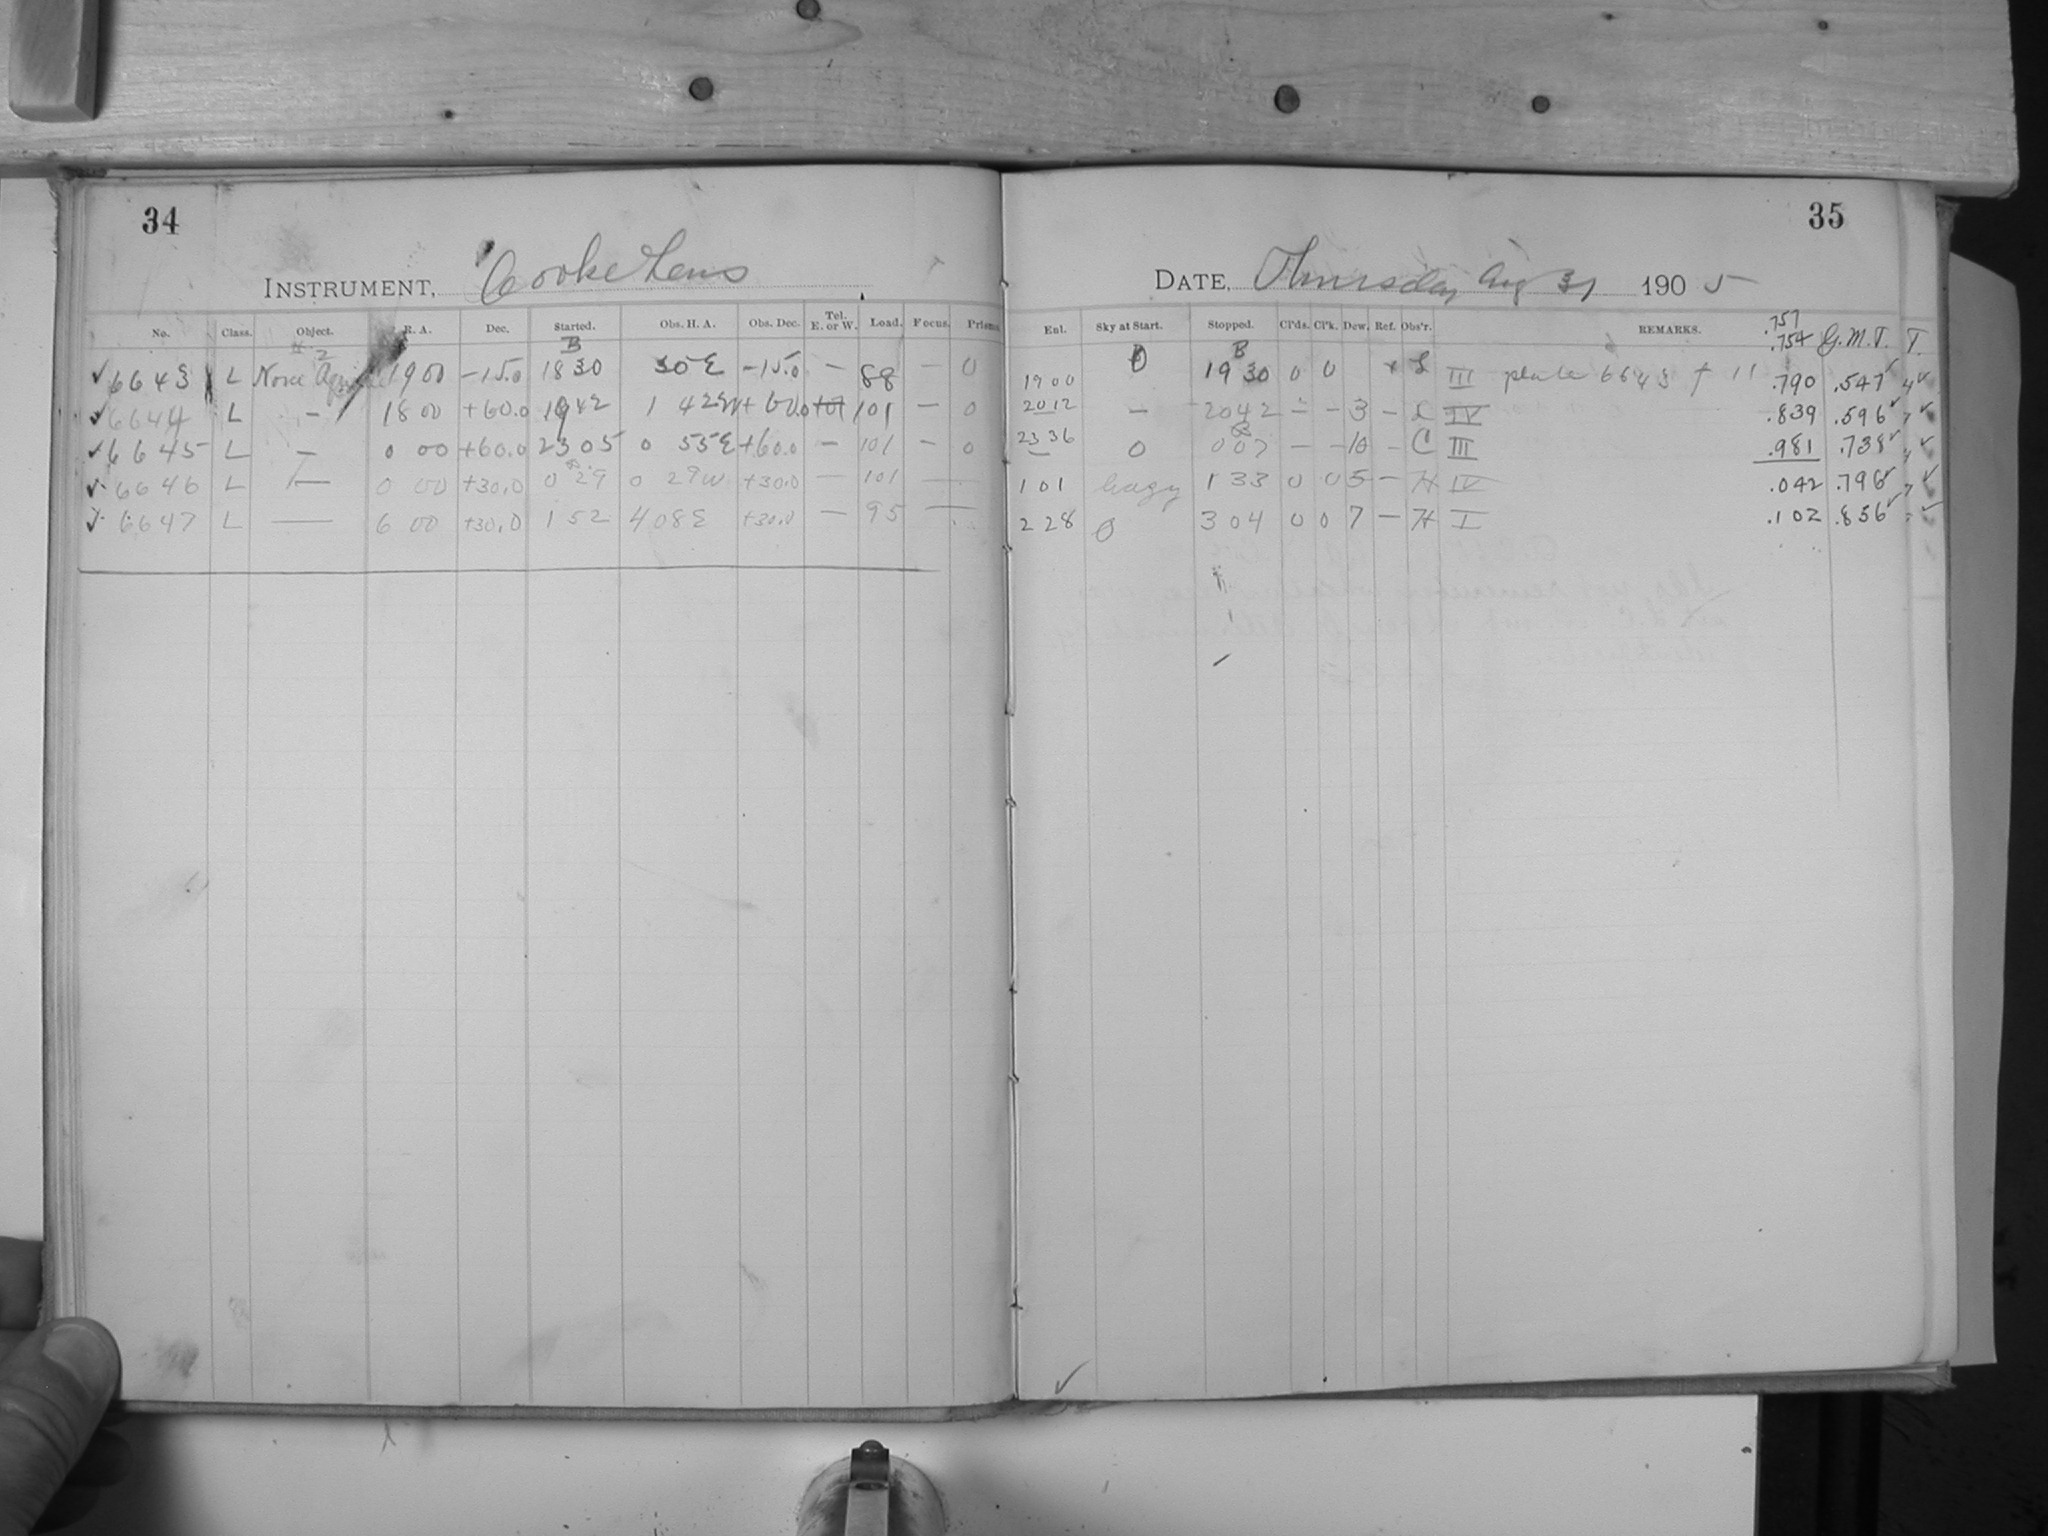 34
INSTRUMENT, Cooke Lens
No. Class. Object. R. A. Dec. Started. Obs. H. A. Obs. Dec. Tel. E. or W. Load. Focus. Prisms
6643 L Nova Aquilae 2 1900 -15.0 B 18 30 30 E -15.0 — 88 — 0
6644 L — 18 00 +60.0 1942 1 42 W +60.0 101 — 0
6645 L — 0 00 +60.0 2305 0 55 E +60.0 — 101 — 0
6646 L — 0 00 +30.0 0 29 0 29 W +30.0 — 101 —
6647 L — 6 00 +30.0 1 52 4 08 E +30.0 — 95 —
35
DATE, Thursday Aug 31 1905
Enl. Sky at Start. Stopped. Cl'ds. Cl'k. Dew. Ref. Obs'r. REMARKS. .757 .754 G.M.T. T.
1900 0 B 19 30 0 0 L III plate 6643 + 11 .790 .547
2012 — 2042 — — 3 — L IV .839 .596
2336 0 0 07 — — 10 — C III .981 .738
1 01 hazy 1 33 0 0 5 — H IV .042 .796
2 28 0 3 04 0 0 7 — H I .102 .856